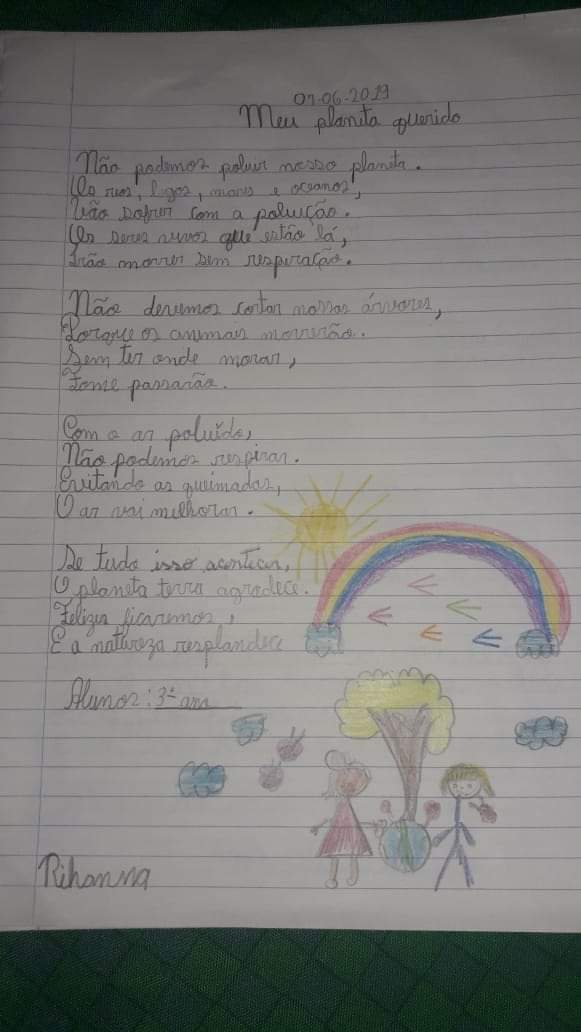 07-06-2019
Meu planeta querido
Não podemos poluir nosso planeta.
Os rios, lagos, mares e oceanos,
Irão sofrer com a poluição.
Os seres vivos que estão lá,
Irão morrer sem respiração.
Não devemos cortar nossas árvores,
Porque os animais morrerão.
Sem ter onde morar,
Fome passarão.
Com o ar poluído,
Não podemos respirar.
Evitando as queimadas,
O ar vai melhorar.
Se tudo isso acontecer,
O planeta terra agradece.
Felizes ficaremos,
E a natureza resplandece
Alunos: 3º ano
Rihanna